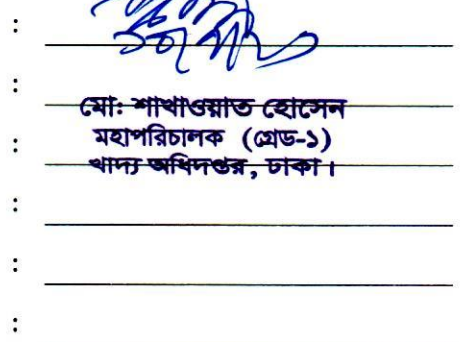 :
:
মো: শাখাওয়াত হোসেন
: মহাপরিচালক (গ্রেড-১)
খাদ্য অধিদপ্তর, ঢাকা।
:
:
: